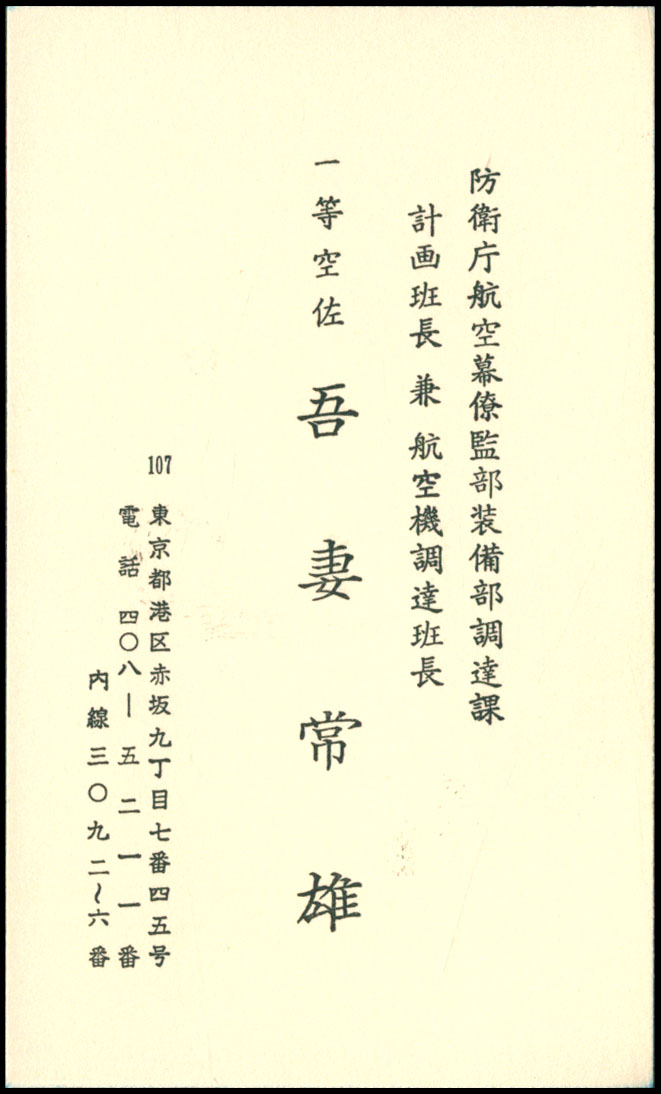 防衛庁航空幕僚監部装備部調達課
計画班長 兼 航空機調達班長
一等空佐 吾妻常雄
107 東京都港区赤坂九丁目七番四五号
電話 四〇八―五二一一番
内線三〇九二~六番